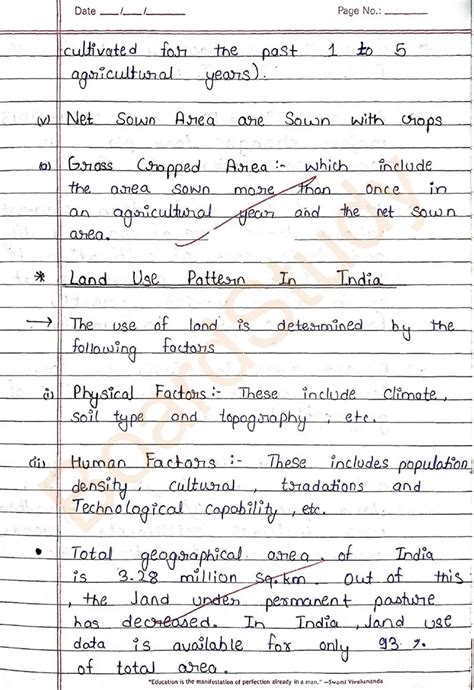 Date ___/___/___ Page No.: ______
cultivated for the past 1 to 5
agricultural years).
(v) Net Sown Area are Sown with crops
(a) Gross Cropped Area :- which include
the area sown more than once in
an agricultural year and the net sown
area.
* Land Use Pattern In India
→ The use of land is determined by the
following factors
(i) Physical Factors :- These include climate,
soil type and topography, etc.
(ii) Human Factors :- These includes population
density, cultural, tradations and
Technological capability, etc.
• Total geographical area of India
is 3.28 million sq.km. Out of this
, the land under permanent pasture
has decreased. In India, land use
data is available for only 93 %
of total area.
"Education is the manifestation of perfection already in a man." —Swami Vivekananda
BoardStudy